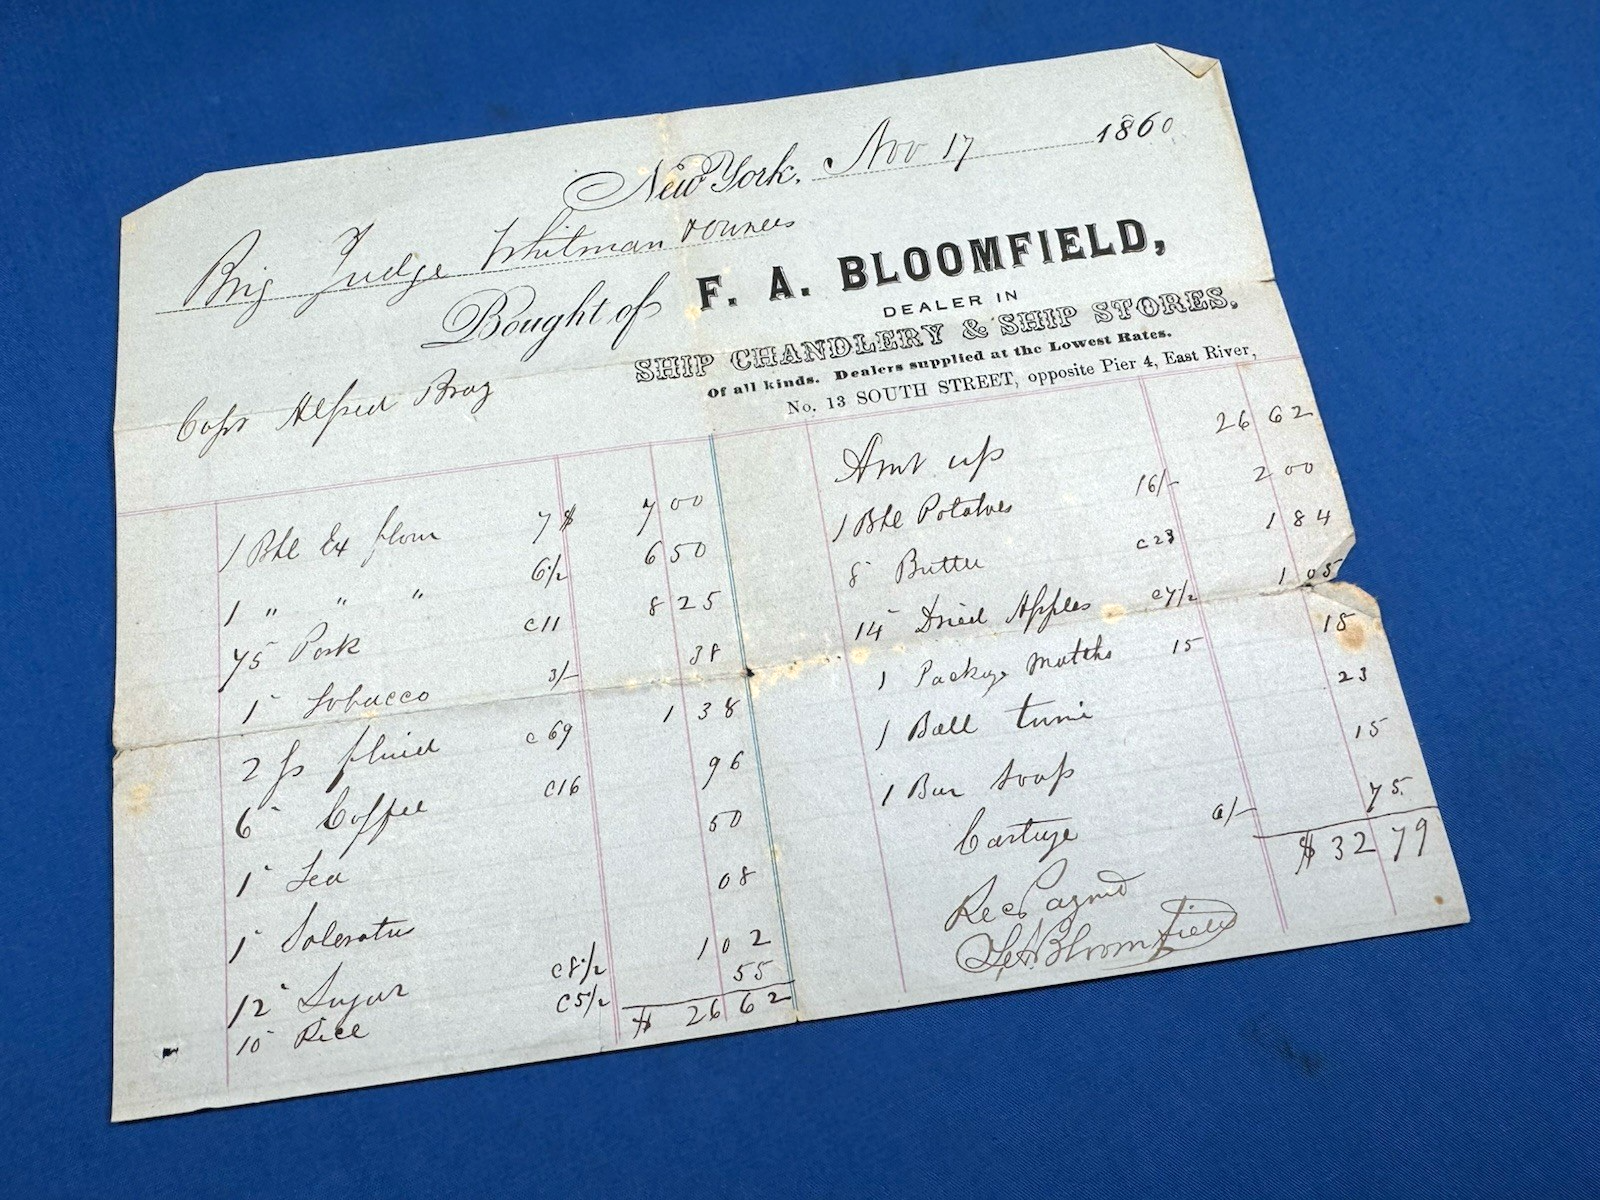 New York, Nov 17 1860
Brig Judge Whitman & owners
Bought of F. A. BLOOMFIELD,
DEALER IN
SHIP CHANDLERY & SHIP STORES,
Of all kinds. Dealers supplied at the Lowest Rates.
No. 13 SOUTH STREET, opposite Pier 4, East River,
Capt Alfred Bray
1 Bbl Ex flour 7$ 7 00
1 " " " 6 1/2 6 50
75 Pork c11 8 25
1 Tobacco 3/- 38
2 gs fluid c69 1 38
6 Coffee c16 96
1 Tea 50
1 Soleratus 08
12 Sugar c8 1/2 1 02
10 Rice c5 1/2 55
$ 26 62
Amt up 26 62
1 Bbl Potatoes 16/- 2 00
8 Butter c23 1 84
14 Dried Apples c7 1/2 1 05
1 Package matches 15 15
1 Ball twine 23
1 Bar Soap 15
Cartage 6/- 75
$ 32 79
Rec Paymt
F A Bloomfield